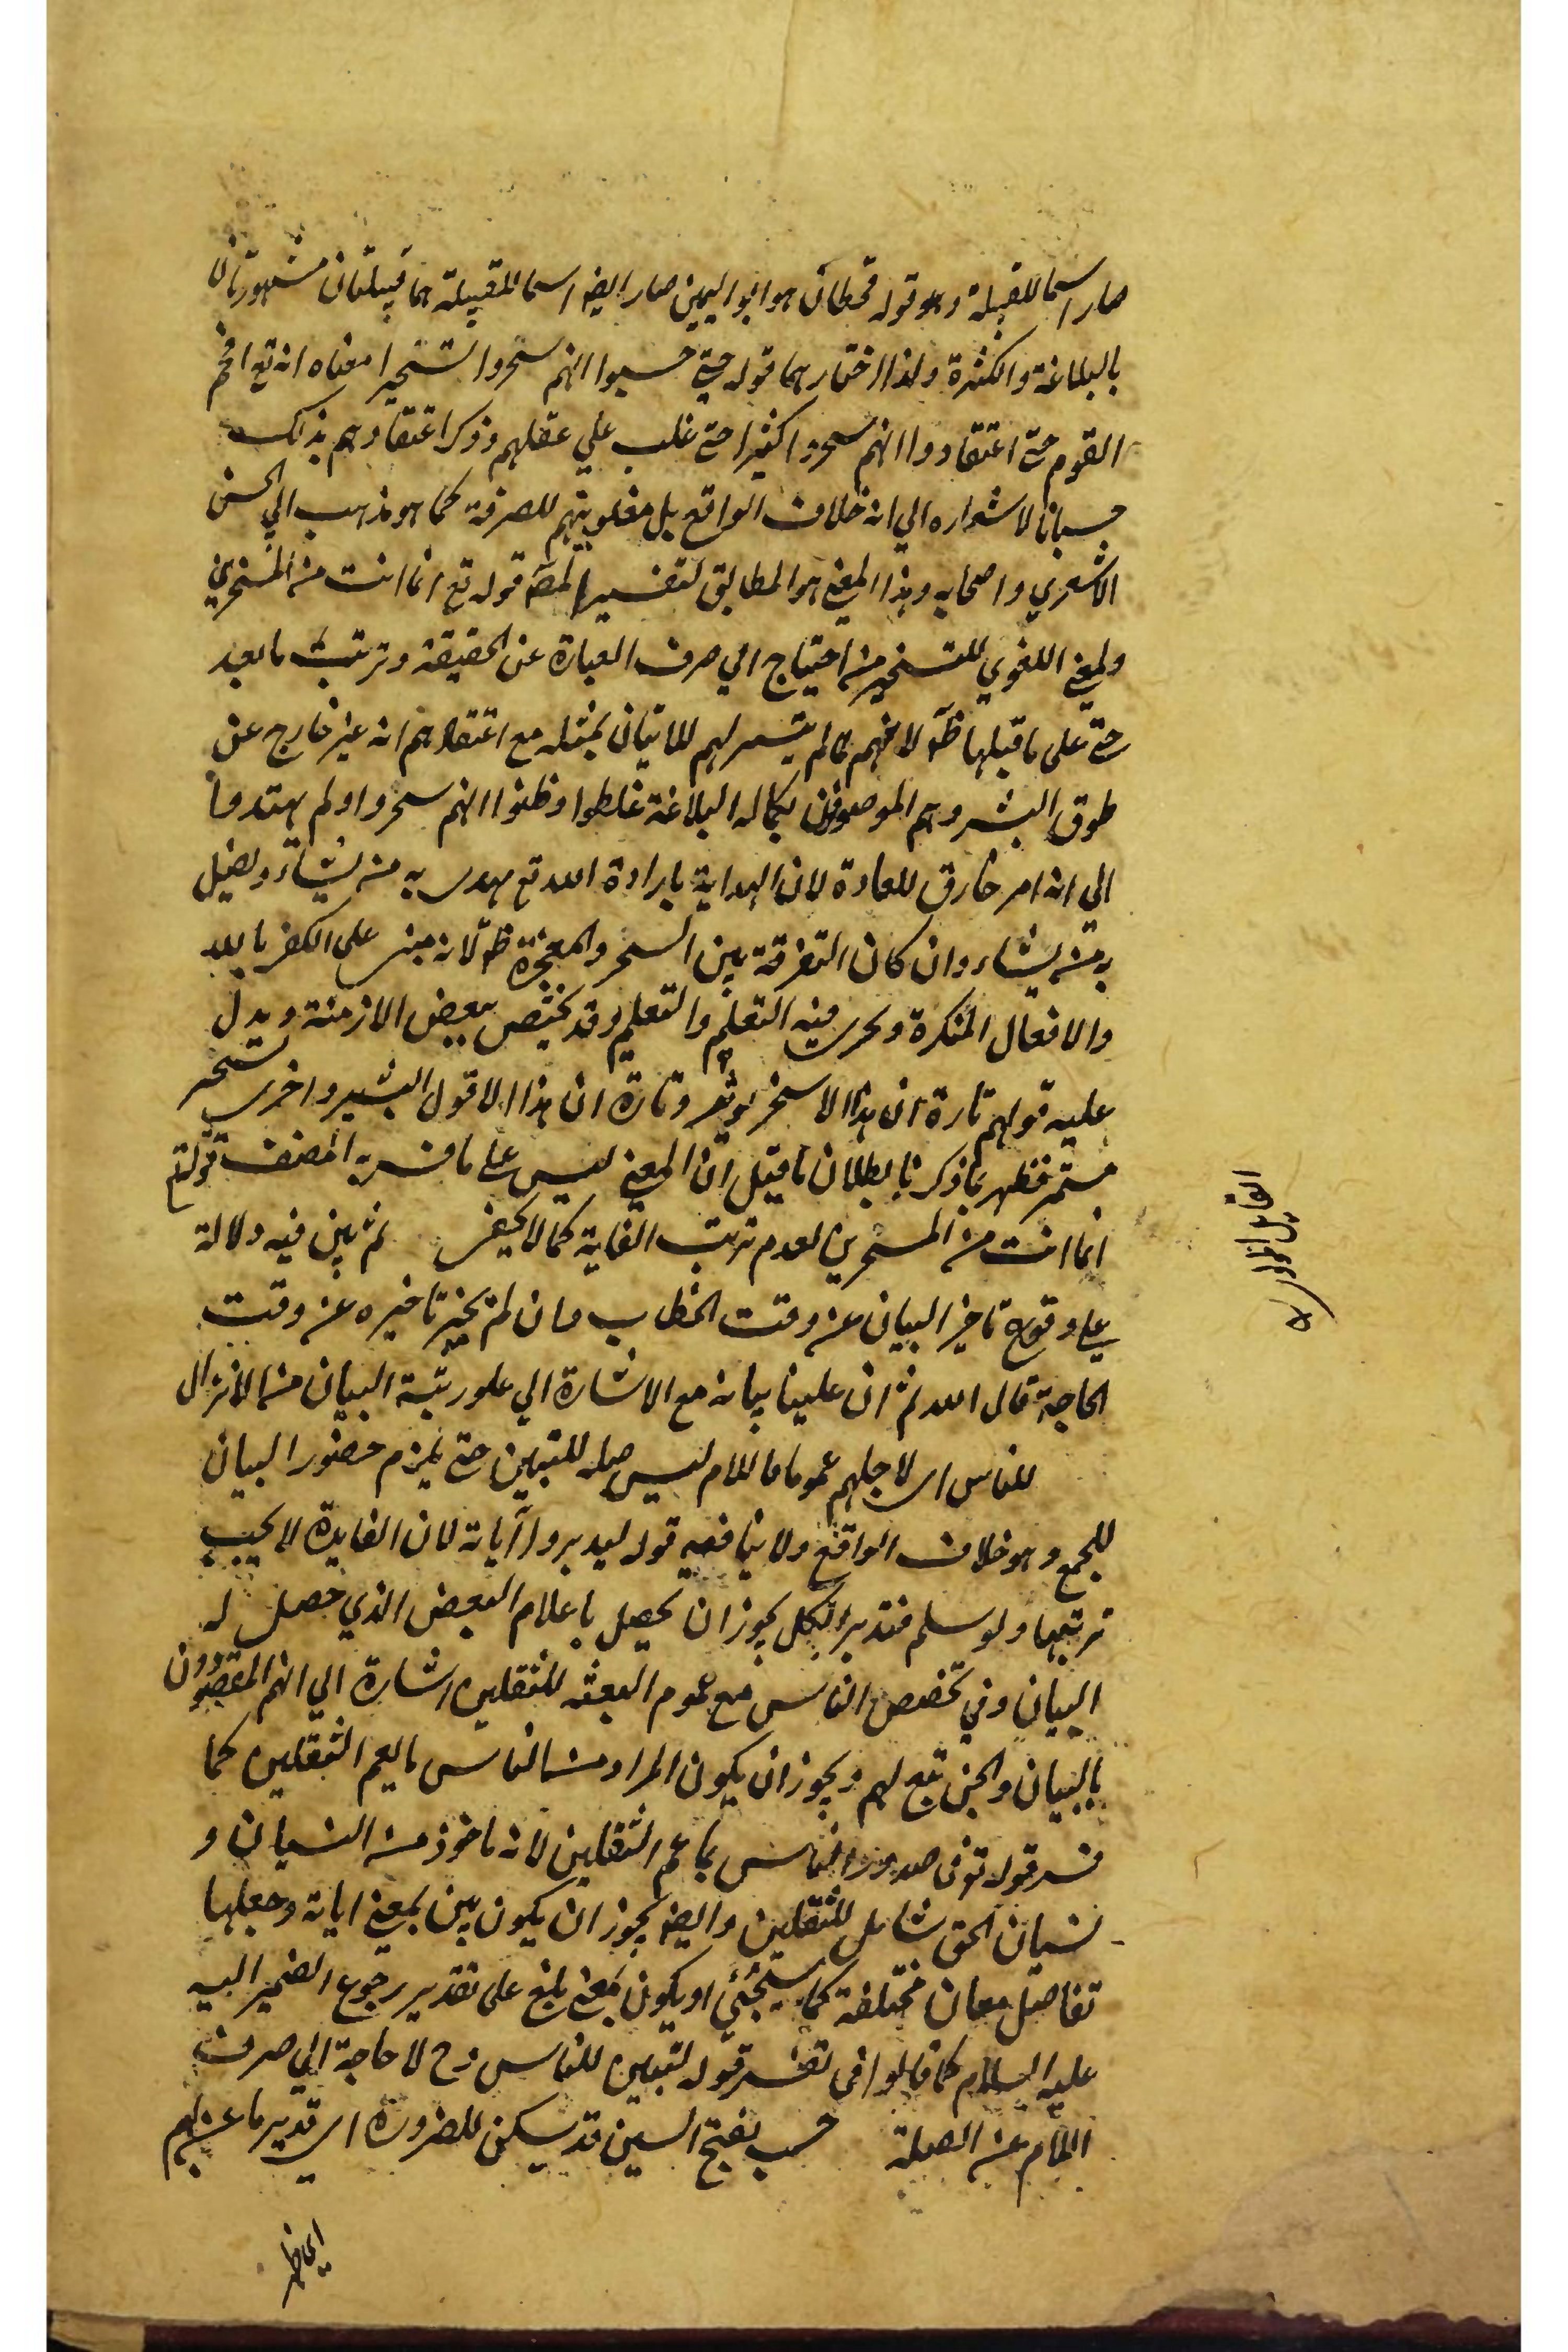 صار اسما للقبيلة وهو قوله قحطان هو ابو اليمن صار ايضا اسما للقبيلة هما قبيلتان مشهورتان
بالبلاغة والكثرة ولذا اختارهما قوله حتى حسبوا انهم سحروا تسحيرا معناه انه تع افحم
القوم حتى اعتقدوا انهم سحروا كثيرا حتى غلب علي عقلهم وذكر اعتقادهم بذلك
حسبانا لاشعاره الي انه خلاف الواقع بل مغلوبيتهم للصرفة كما هو مذهب ابي الحسن
الاشعري واصحابه وهذا المعنى هو المطابق لتفسير المص قوله تع انما انت من المسحرين
ولمعنى اللغوي للتسحير من احتياج الي صرف العبارة عن الحقيقة وترتب ما بعد
حتى على ما قبلها ظ لانهم لما لم يتيسر لهم للاتيان بمثله مع اعتقادهم انه غير خارج عن
طوق البشر وهم الموصوفون بكمال البلاغة غلطوا وظنوا انهم سحروا ولم يهتدوا
الي انه امر خارق للعادة لان الهداية بارادة الله تع يهدي به من يشاء ويضل
به من يشاء وان كان التفرقة بين السحر والمعجزة ظ لانه مبني على الكفر بالله
والافعال المنكرة ويجري فيه التعلم والتعليم وقد يختص ببعض الازمنة ويدل
عليه قولهم تارة ان هذا الا سحر يوثر وتارة ان هذا الا قول البشر واخري سحر
مستمر فظهر بما ذكرنا بطلان ما قيل ان المعنى ليس على ما فسر به المصنف قوله تع
انما انت من المسحرين لعدم ترتب الغاية كما لا يخفى ثم بين فيه دلالة
علي وقوع تاخير البيان عن وقت الخطاب وان لم يجز تاخيره عن وقت
الحاجة قال الله ثم ان علينا بيانه مع الاشارة الي علو رتبة البيان من الانزال
للناس اي لاجلهم عموما فاللام ليس صلة للتبيين حتى يلزم حضور البيان
للجمع وهو خلاف الواقع ولا ينافيه قوله ليدبروا آياته لان الفايدة لا يجب
ترتبها ولو سلم فتدبر الكل يجوز ان يحصل باعلام البعض الذي حصل له
البيان وفي تخصيص الناس مع عموم البعثه للثقلين اشارة الي انهم المقصودون
بالبيان والجن تبع لهم ويجوز ان يكون المراد من الناس ما يعم الثقلين كما
فسر قوله تع في صدور الناس بما عم الثقلين لانه ماخوذ من النسيان و
نسيان الحق شامل للثقلين وايضا يجوز ان يكون بين بمعنى اياته وجعلها
تفاصيل معان مختلفة كما سيجئي او يكون بمعنى بلغ على تقدير رجوع الضمير اليه
عليه السلام كما قالوا في تفسير قوله لتبين للناس وح لا حاجة الي صرف
اللام عن الصلة حسب بفتح السين قد يسكن للضرورة اي قدير ما عن لهم